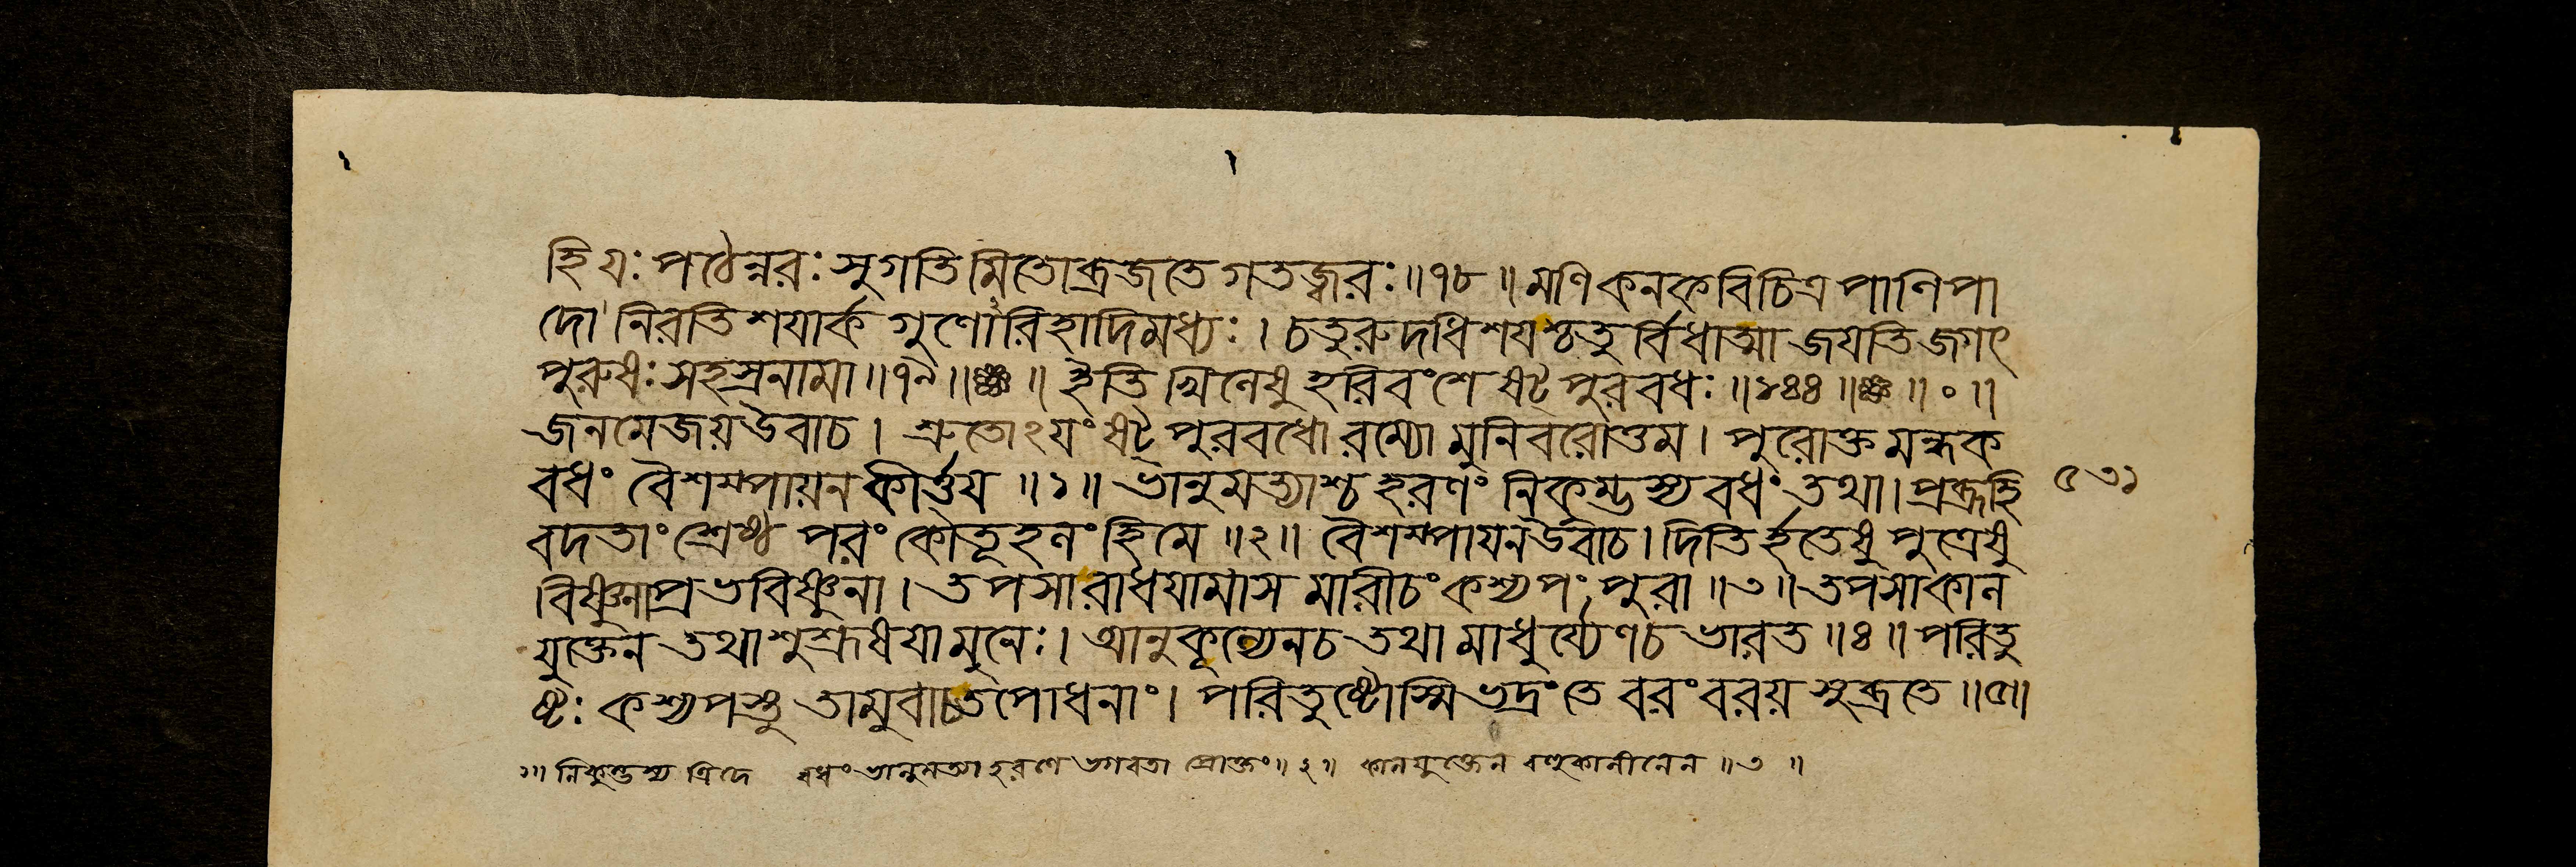 হি যঃ পঠেন্নরঃ সুগতিমিতো ব্রজতে গতজ্বরঃ ॥ ৭৮ ॥ মণিকনকবিচিত্রপাণিপা
দো নিরতিশযার্কগুণোরিহাদিমধ্যঃ । চতুরুদধিশযশ্চতুর্বিধাত্মা জযতি জগৎ
পুরুষঃ সহস্রনামা ॥ ৭৯ ॥ ইতি খিলেষু হরিবংশে ষট্পুরবধঃ ॥ ১৪৪ ॥ ० ॥
জনমেজয় উবাচ । শ্রুতোঽযং ষট্পুরবধো রম্যো মুনিবরোত্তম । পুরোক্তমন্ধক
বধং বৈশম্পায়ন কীর্ত্তয ॥ ১ ॥ ভানুমত্যাশ্চ হরণং নিকুম্ভস্য বধং তথা । প্রব্রূহি
৫৩১
বদতাং শ্রেষ্ঠ পরং কৌতূহলং হি মে ॥ ২ ॥ বৈশম্পাযন উবাচ । দিতির্হতেষু পুত্রেষু
বিষ্ণুনা প্রভবিষ্ণুনা । তপসারাধযামাস মারীচং কশ্যপং পুরা ॥ ৩ ॥ তপসা কাল
যুক্তেন তথা শুশ্রূষযা মুনেঃ । আনুকূল্যেন চ তথা মাধুর্য্যেণ চ ভারত ॥ ৪ ॥ পরিতু
ষ্টঃ কশ্যপস্তু তামুবাচ তপোধনাং । পরিতুষ্টোস্মি ভদ্রং তে বরং বরয় সুব্রতে ॥ ৫ ॥
১॥ নিকুম্ভস্য বধং ভানুমত্যা হরণে ভগবতা প্রোক্তং ॥ ২ ॥ কালযুক্তেন ॥ ৩ ॥